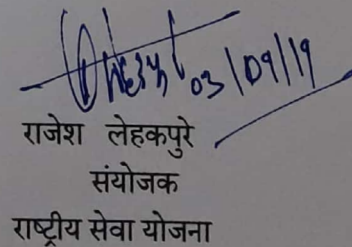 03/09/19
राजेश लेहकपुरे
संयोजक
राष्ट्रीय सेवा योजना